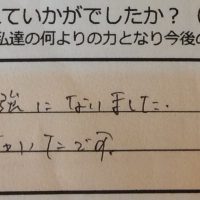 ていかがでしたか？（
私達の何よりの力となり今後の
強になりました。
たいです。